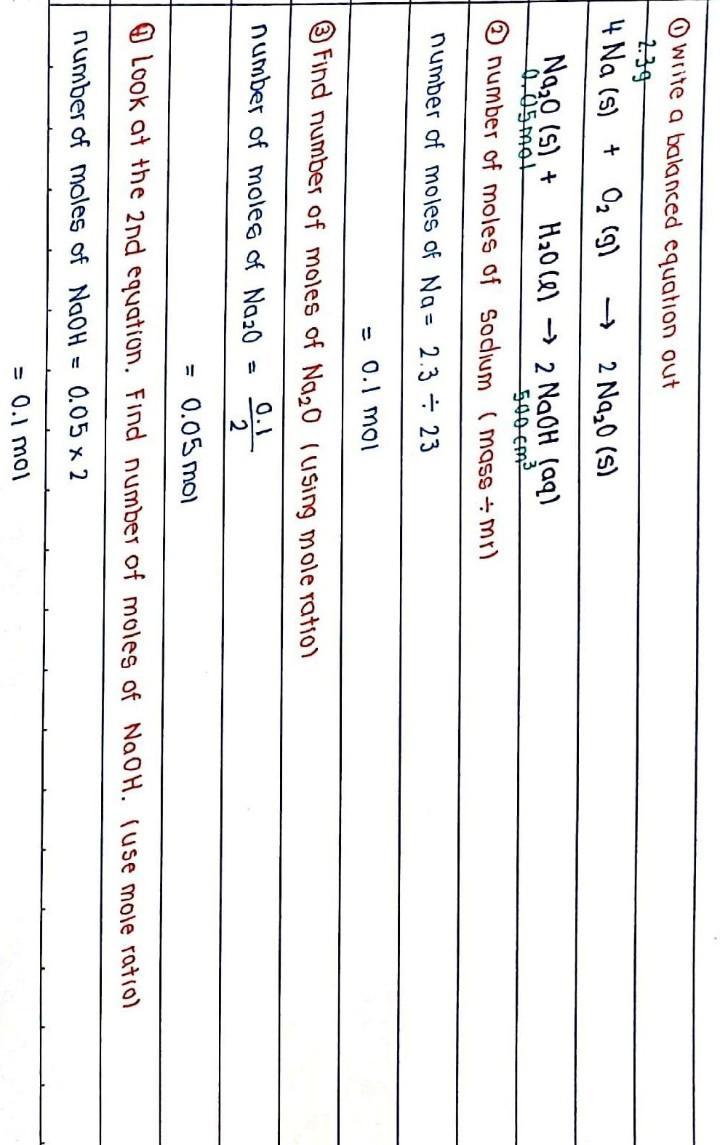 ① Write a balanced equation out
2.3g
4 Na (s) + O₂ (g) → 2 Na₂O (s)
Na₂O (s) + H₂O (l) → 2 NaOH (aq)
0.05mol 500cm³
② number of moles of sodium (mass ÷ mr)
number of moles of Na = 2.3 ÷ 23
= 0.1 mol
③ Find number of moles of Na₂O (using mole ratio)
number of moles of Na₂O = 0.1/2
= 0.05 mol
④ Look at the 2nd equation. Find number of moles of NaOH. (use mole ratio)
number of moles of NaOH = 0.05 x 2
= 0.1 mol